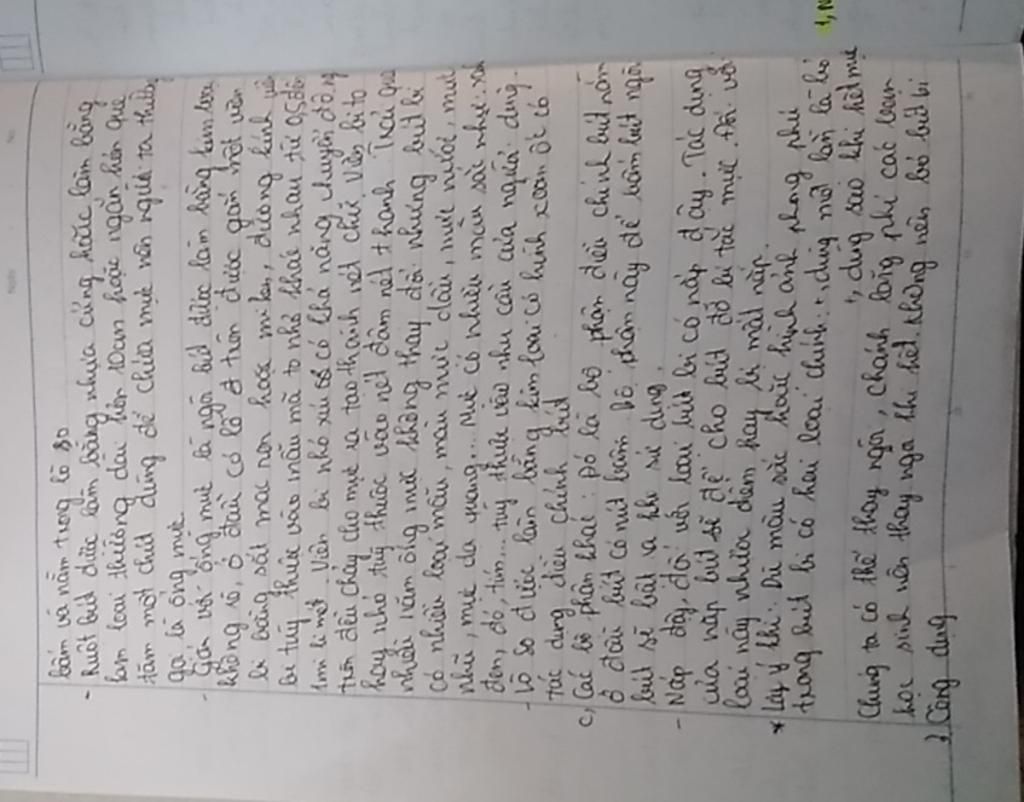 bấm và nằm trong lò so
- Ruột bút được làm bằng nhựa cứng hoặc làm bằng
kim loại thường dài hơn 10cm hoặc ngắn hơn que
tăm một chút dùng để chứa mực nên người ta thường
gọi là ống mực
- Gắn với ống mực là ngòi bút được làm bằng kim loại
không rỉ, ở đầu có lỗ ở trên được gắn một viên
bi bằng sắt mạ non hoặc mi ken, đường kính viên
bi tùy thuộc vào mẫu mã to nhỏ khác nhau từ 0,5 đến
1 mi li mét. Viên bi nhỏ xíu có khả năng chuyển động
tròn đều chảy cho mực ra tạo thành nét chữ. Viên bi to
hay nhỏ tùy thuộc vào nét đậm nét thanh. Trải qua
nhiều năm ống mực không thay đổi nhưng bút bi
có nhiều loại mẫu, màu mực dầu, mực nước, mực
nhũ, mực dạ quang... Mực có nhiều màu sắc như: xanh
đen, đỏ, tím... tùy thuộc vào nhu cầu của người dùng.
- Lò so được làm bằng kim loại có hình xoắn ốc có
tác dụng điều chỉnh bút
c, Các bộ phận khác: Đó là bộ phận điều chỉnh bút nằm
ở đầu bút có nút bấm. bộ phận này để bấm bút ngòi
bút sẽ bật ra khi sử dụng.
- Nắp đậy, đối với loại bút bi có nắp đậy. Tác dụng
của nắp bút sẽ để cho bút đỡ bị tắc mực. Đối với
loại này nhược điểm hay bị mất nắp.
* Lưu ý thì: Dù màu sắc hoặc hình ảnh phong phú
trong bút bi có hai loại chính: +, dùng một lần là bỏ
+, dùng sau khi hết mực
Chúng ta có thể thay ngòi, tránh lãng phí các bạn
học sinh nên thay ngòi khi hết, không nên bỏ bút bi
3 Công dụng
1,